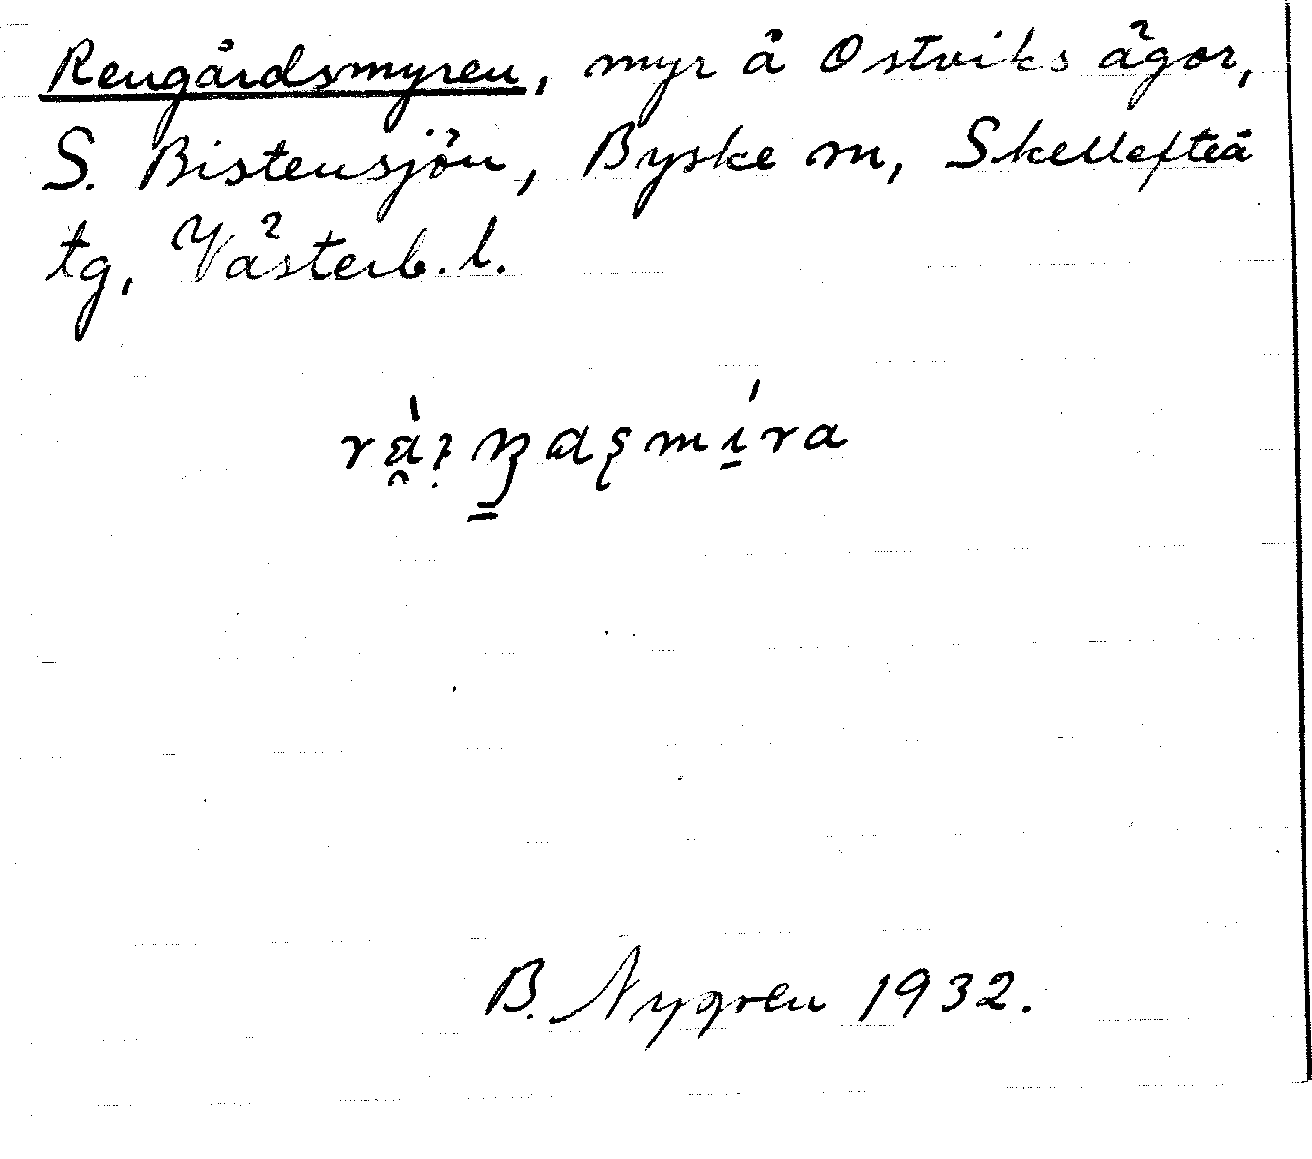 Rengårdsmyren, myr å Ostviks ägor,
S. Bistensjön, Byske sn, Skellefteå
tg, Västerb. l.
B. Nygren 1932.